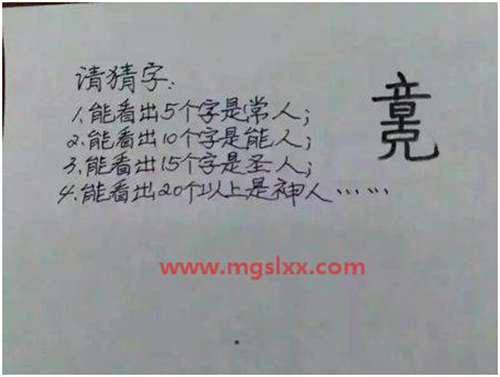 请猜字:
1.能看出5个字是常人;
2.能看出10个字是能人;
3.能看出15个字是圣人;
4.能看出20个以上是神人……
www.mgslxx.com